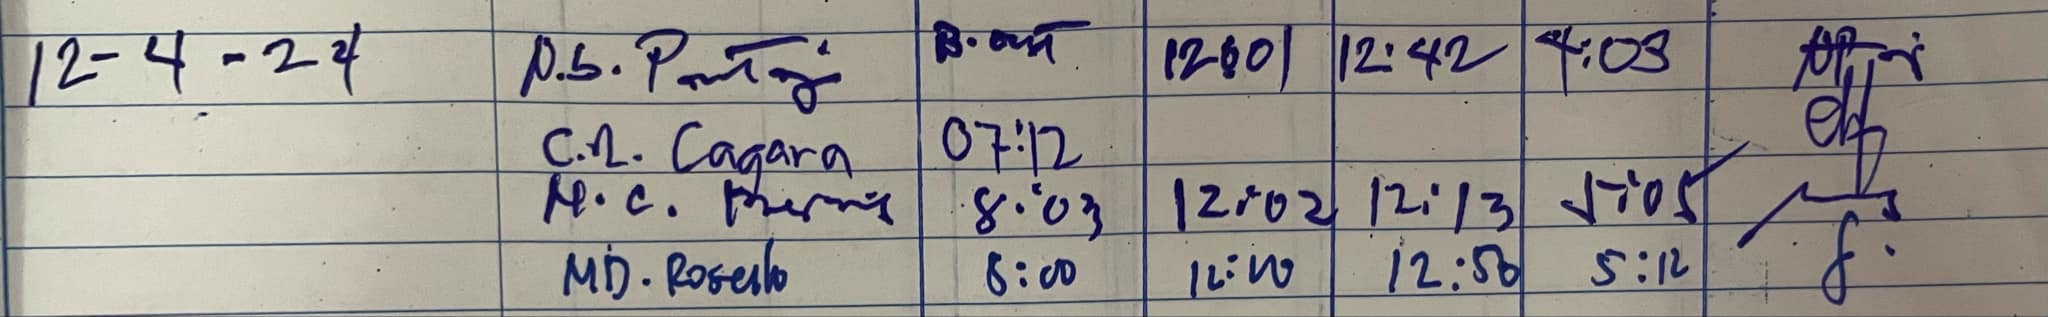 12-4-24 12:01 12:42 4:03
C.R. Cagara 07:12
M.C. 8:03 12:02 12:13 5:05
MD. Rosello 8:00 12:10 12:50 5:12